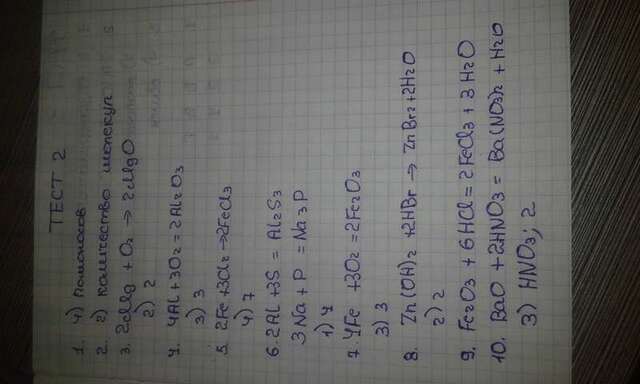 ТЕСТ 2
1. 4) Ломоносов
2. 2) количество молекул
3. 2Mg + O2 → 2MgO
2) 2
4. 4Al + 3O2 = 2Al2O3
3) 3
5. 2Fe + 3Cl2 → 2FeCl3
4) 7
6. 2Al + 3S = Al2S3
3Na + P = Na3P
1) 4
7. 4Fe + 3O2 = 2Fe2O3
3) 3
8. Zn(OH)2 + 2HBr → ZnBr2 + 2H2O
2) 2
9. Fe2O3 + 6HCl = 2FeCl3 + 3H2O
10. BaO + 2HNO3 = Ba(NO3)2 + H2O
3) HNO3; 2